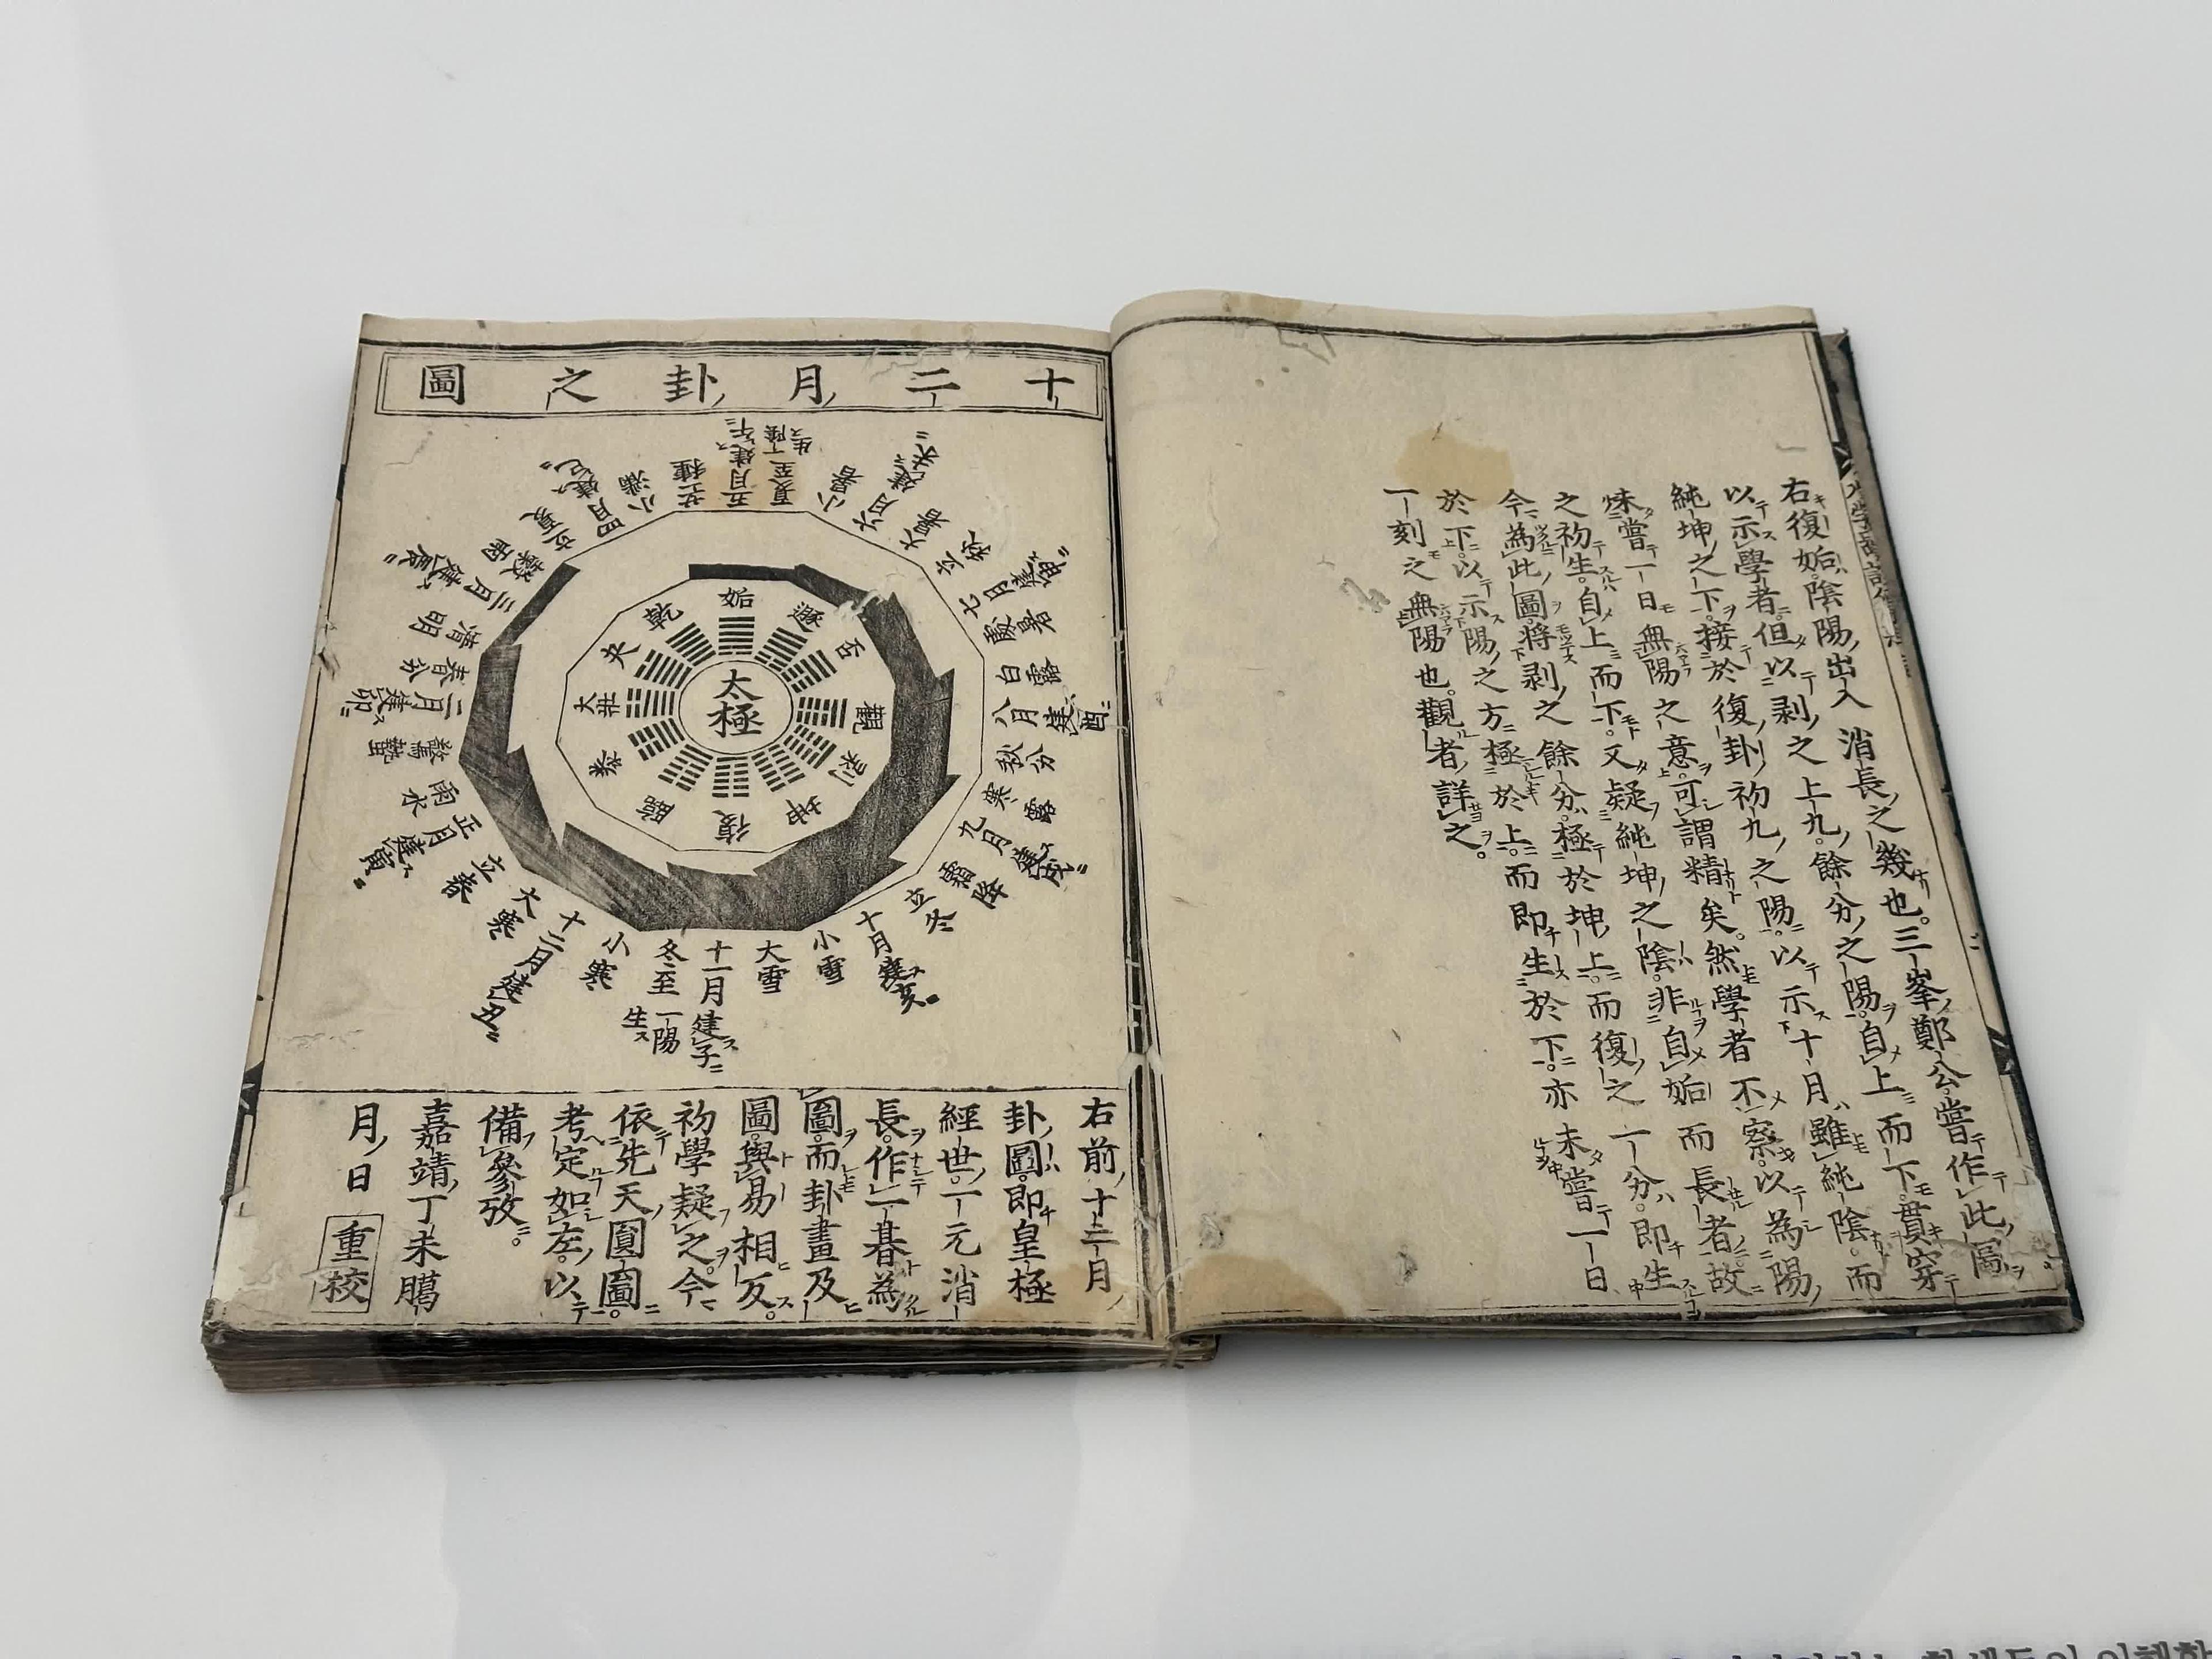 右復姤陰陽出入消長之幾也。三峯鄭公嘗作此圖
以示學者。但以剥之上九。餘分之陽。自上而下。貫穿
純坤之下。接於復卦初九之陽。以示十月雖純陰而
未嘗一日無陽之意。可謂精矣。然學者不察。以為陽
之初生。自上而下。又疑純坤之陰。非自姤而長者。故
今為此圖。將剥之餘分。極於坤上。而復之一分。即生
於下。以示陽之方極於上。而即生於下。亦未嘗一日
一刻之無陽也。觀者詳之。
十二月卦之圖
太極
姤
遯
否
觀
剥
坤
復
臨
泰
大壯
夬
乾
五月建午
夏至 一陰生
小暑
六月建未
大暑
立秋
七月建申
處暑
白露
八月建酉
秋分
寒露
九月建戌
霜降
立冬
十月建亥
小雪
大雪
十一月建子
冬至 一陽生
小寒
十二月建丑
大寒
立春
正月建寅
雨水
驚蟄
二月建卯
春分
清明
三月建辰
穀雨
立夏
四月建巳
小滿
芒種
右前十二月
卦圖。即皇極
經世。一元消
長。作一朞為
圖。而卦畫及
圖。與易相反。
初學疑之。今
依先天圓圖。
考定如左。以
備參攷。
嘉靖丁未臈
月日 重校